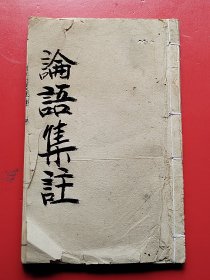 論語集註